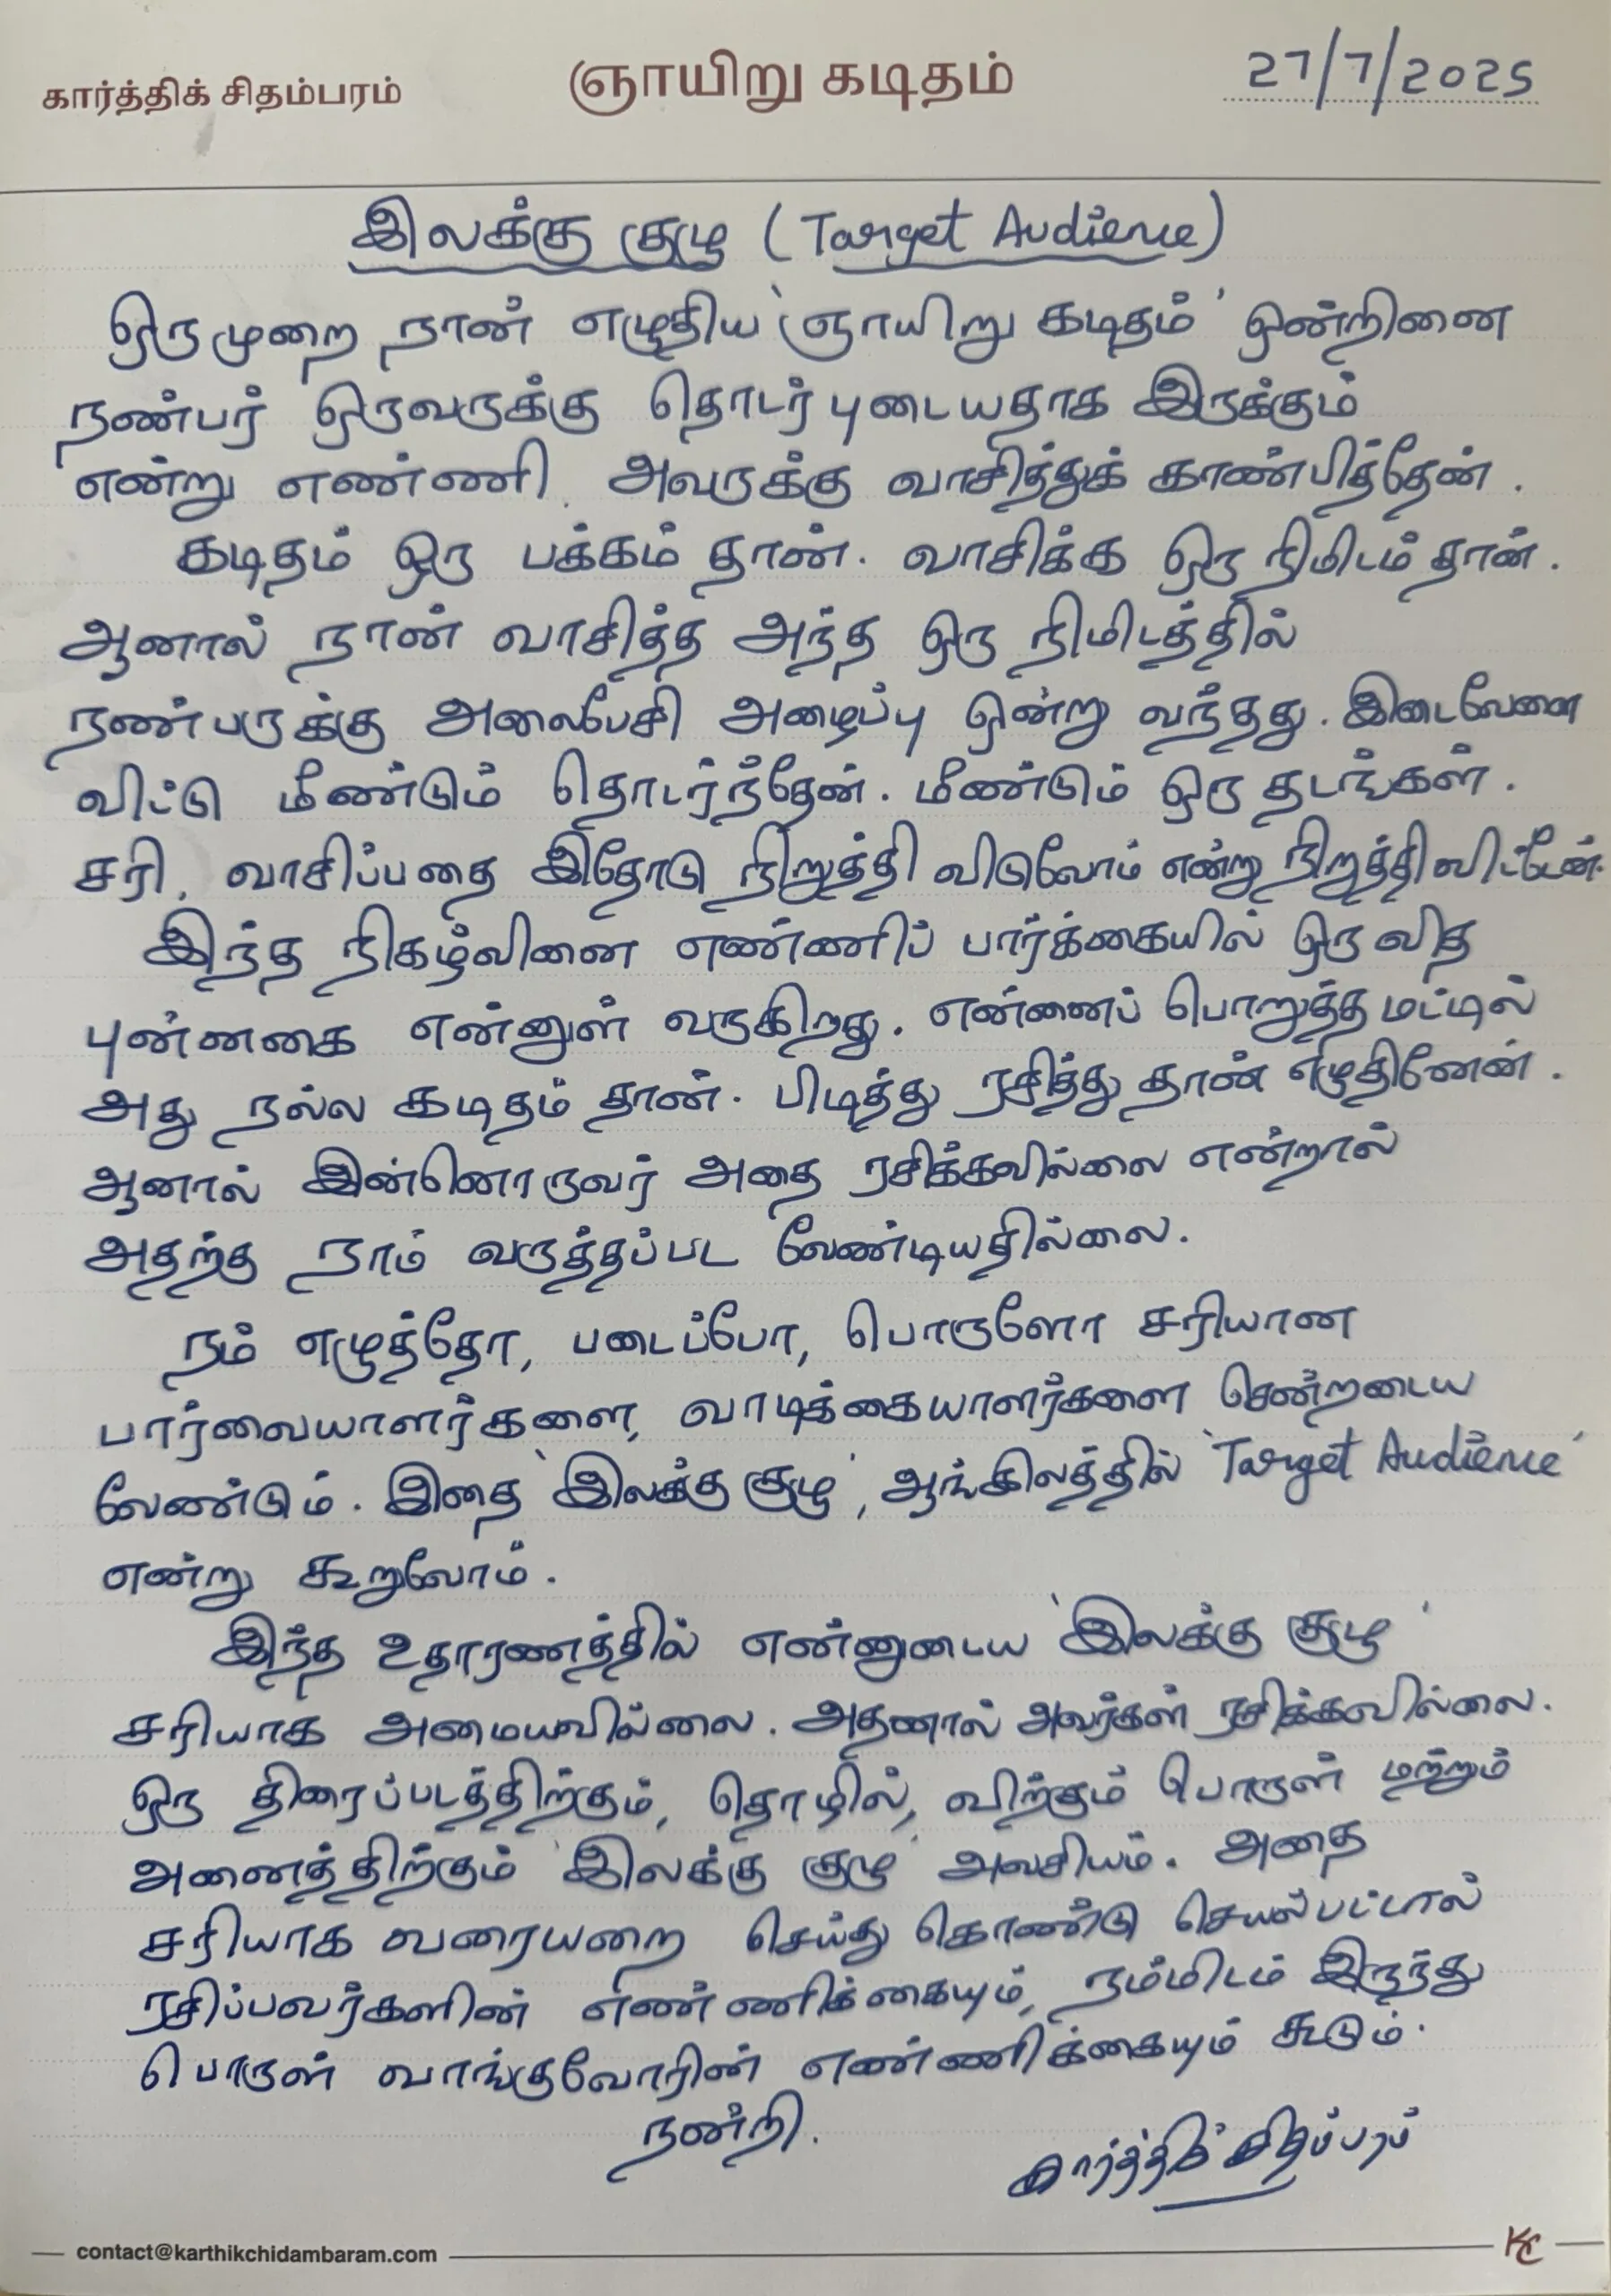 கார்த்திக் சிதம்பரம்
ஞாயிறு கடிதம்
27/7/2025
இலக்கு குழு (Target Audience)
ஒருமுறை நான் எழுதிய 'ஞாயிறு கடிதம்' ஒன்றினை
நண்பர் ஒருவருக்கு தொடர்புடையதாக இருக்கும்
என்று எண்ணி அவருக்கு வாசித்துக் காண்பித்தேன்.
கடிதம் ஒரு பக்கம் தான். வாசிக்க ஒரு நிமிடம் தான்.
ஆனால் நான் வாசித்த அந்த ஒரு நிமிடத்தில்
நண்பருக்கு அலைபேசி அழைப்பு ஒன்று வந்தது. இடைவேளை
விட்டு மீண்டும் தொடர்ந்தேன். மீண்டும் ஒரு தடங்கள்.
சரி, வாசிப்பதை இதோடு நிறுத்தி விடுவோம் என்று நிறுத்தி விட்டேன்.
இந்த நிகழ்வினை எண்ணிப் பார்க்கையில் ஒரு வித
புன்னகை என்னுள் வருகிறது. என்னைப் பொறுத்த மட்டில்
அது நல்ல கடிதம் தான். பிடித்து ரசித்து தான் எழுதினேன்.
ஆனால் இன்னொருவர் அதை ரசிக்கவில்லை என்றால்
அதற்கு நாம் வருத்தப்பட வேண்டியதில்லை.
நம் எழுத்தோ, படைப்போ, பொருளோ சரியான
பார்வையாளர்களை, வாடிக்கையாளர்களை சென்றடைய
வேண்டும். இதை 'இலக்கு குழு', ஆங்கிலத்தில் 'Target Audience'
என்று கூறுவோம்.
இந்த உதாரணத்தில் என்னுடைய 'இலக்கு குழு'
சரியாக அமையவில்லை. அதனால் அவர்கள் ரசிக்கவில்லை.
ஒரு திரைப்படத்திற்கும், தொழில், விற்கும் பொருள் மற்றும்
அனைத்திற்கும் 'இலக்கு குழு' அவசியம். அதை
சரியாக வரையறை செய்து கொண்டு செயல்பட்டால்
ரசிப்பவர்களின் எண்ணிக்கையும், நம்மிடம் இருந்து
பொருள் வாங்குவோரின் எண்ணிக்கையும் கூடும்.
நன்றி.
கார்த்திக் சிதம்பரம்
contact@karthikchidambaram.com
KC